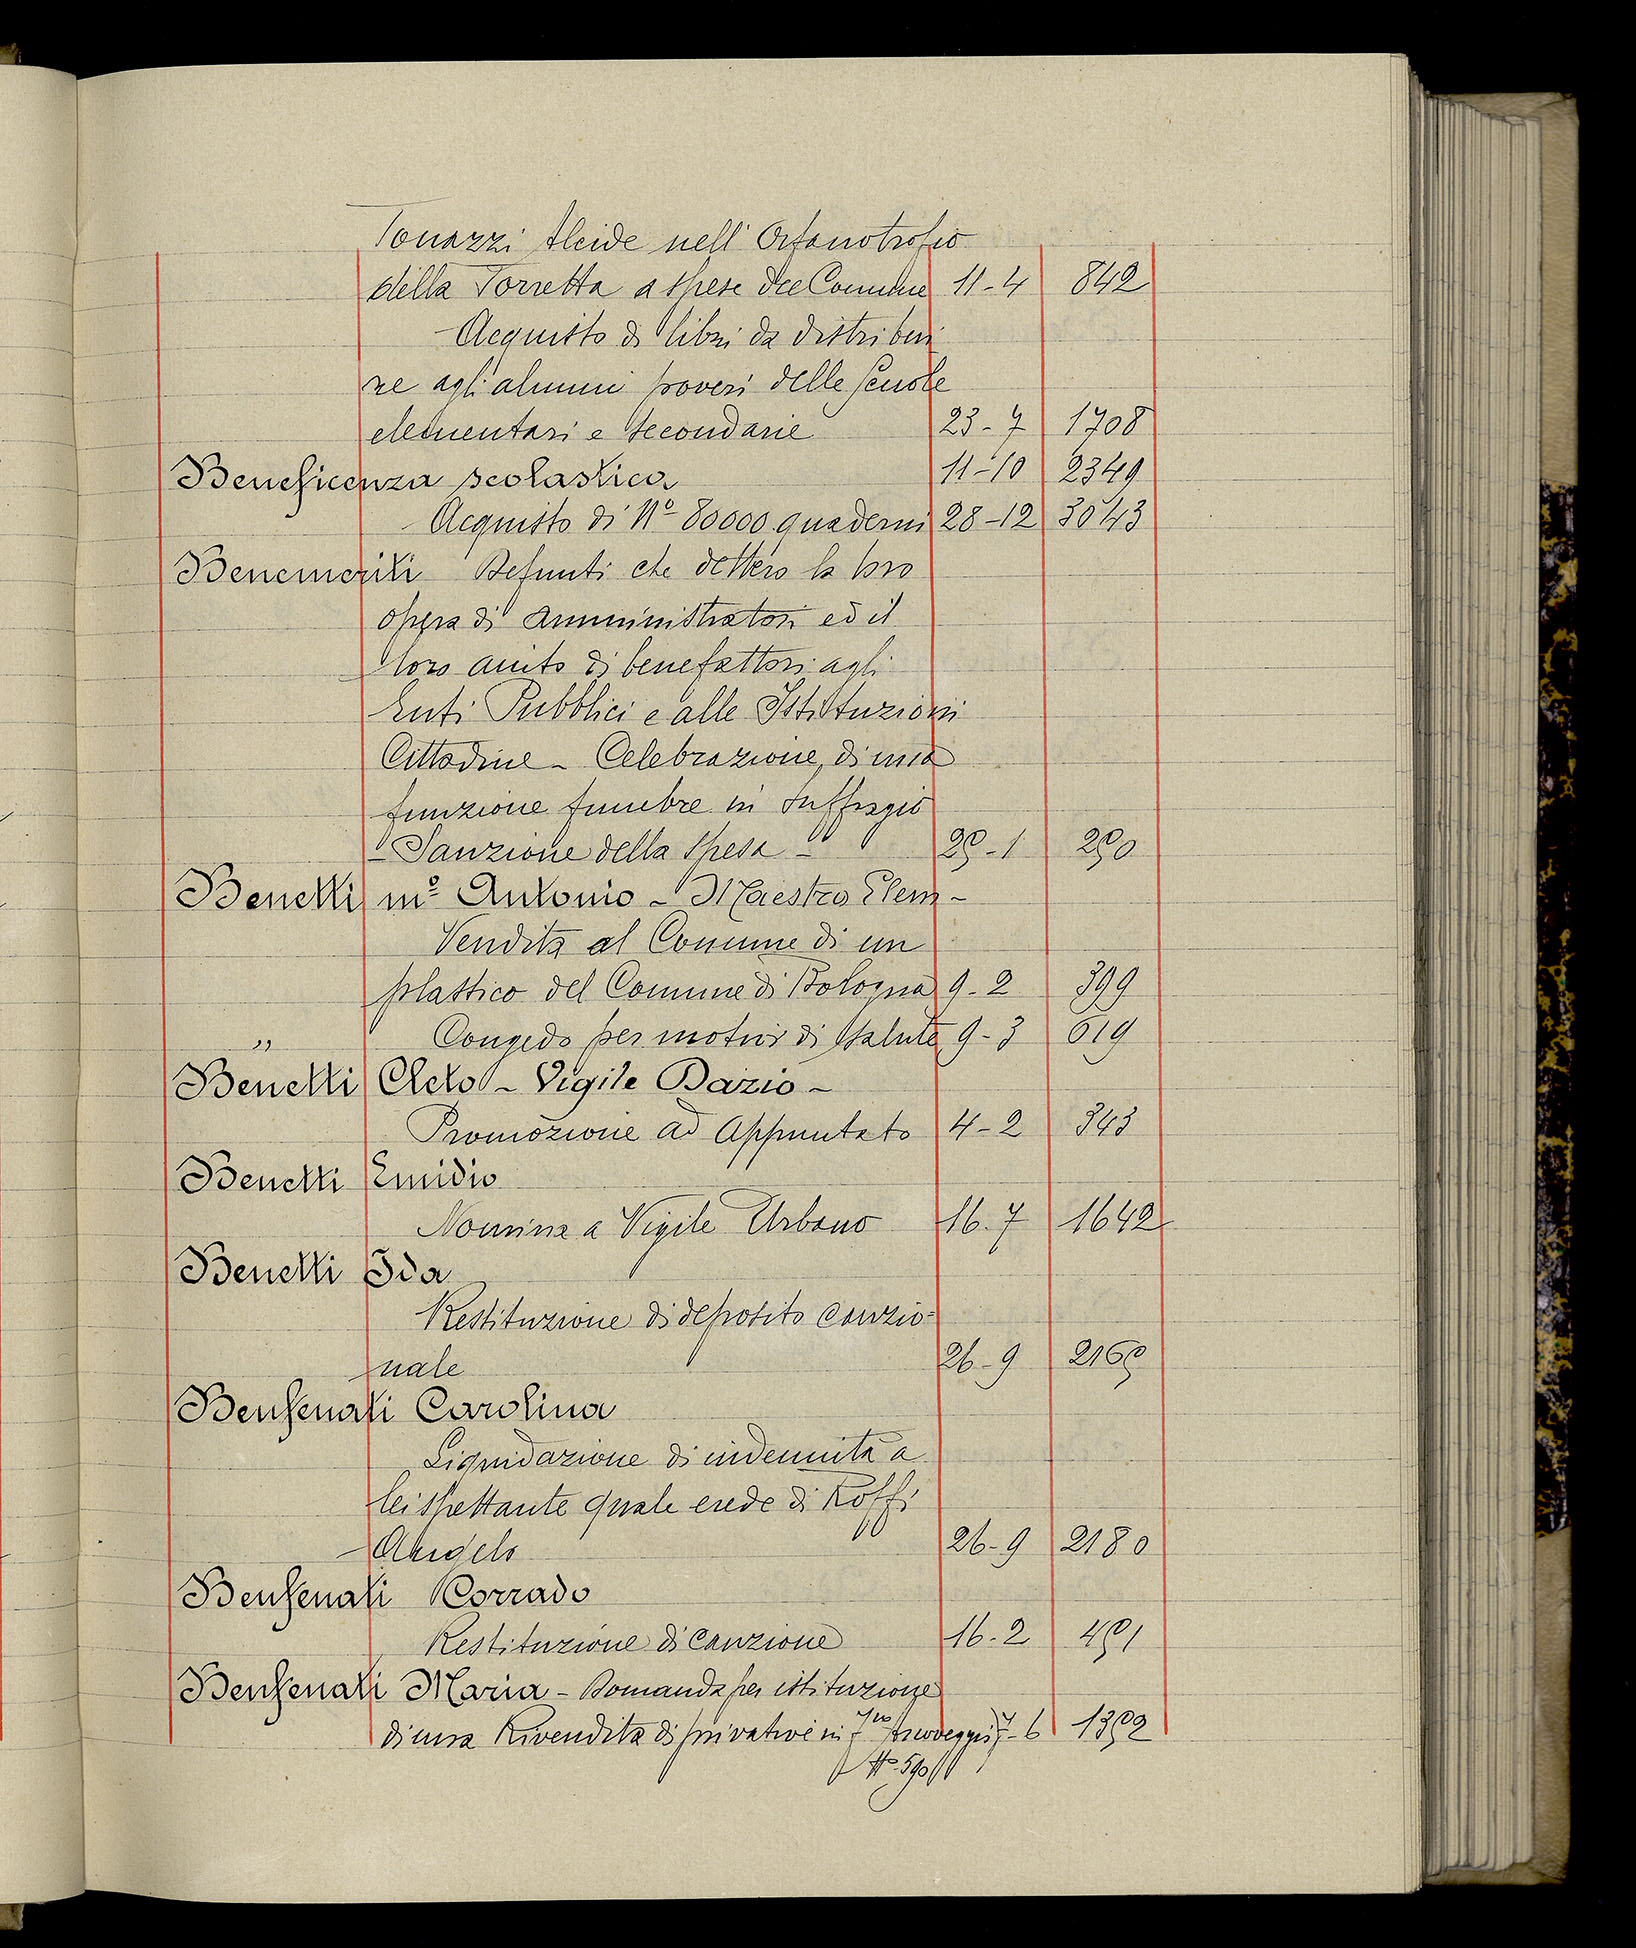 Tonazzi Alcide nell' Orfanotrofio
della Torretta a spese del Comune 11-4 842
Acquisto di libri da distribui
re agli alunni poveri delle Scuole
elementari e secondarie 23-7 1708
Beneficenza scolastica 11-10 2349
Acquisto di N° 80000 quaderni 28-12 3043
Benemeriti Defunti che dettero la loro
opera di amministratori ed il
loro aiuto di benefattori agli
Enti Pubblici e alle Istituzioni
Cittadine - Celebrazione di una
funzione funebre in suffragio
- Sanzione della spesa - 25-1 250
Benetti m° Antonio - Maestro Elem -
Vendita al Comune di un
plastico del Comune di Bologna 9-2 399
„ Congedo per motivi di salute 9-3 619
Benetti Cleto - Vigile Dazio -
Promozione ad Appuntato 4-2 343
Benetti Emidio
Nomina a Vigile Urbano 16-7 1642
Benetti Ida
Restituzione di deposito cauzio=
nale 26-9 2165
Benfenati Carolina
Liquidazione di indennità a
lei spettante quale erede di Roffi
Angelo 26-9 2180
Benfenati Corrado
Restituzione di cauzione 16-2 451
Benfenati Maria - Domanda per istituzione
di una Rivendita di privative in 7-6 1352